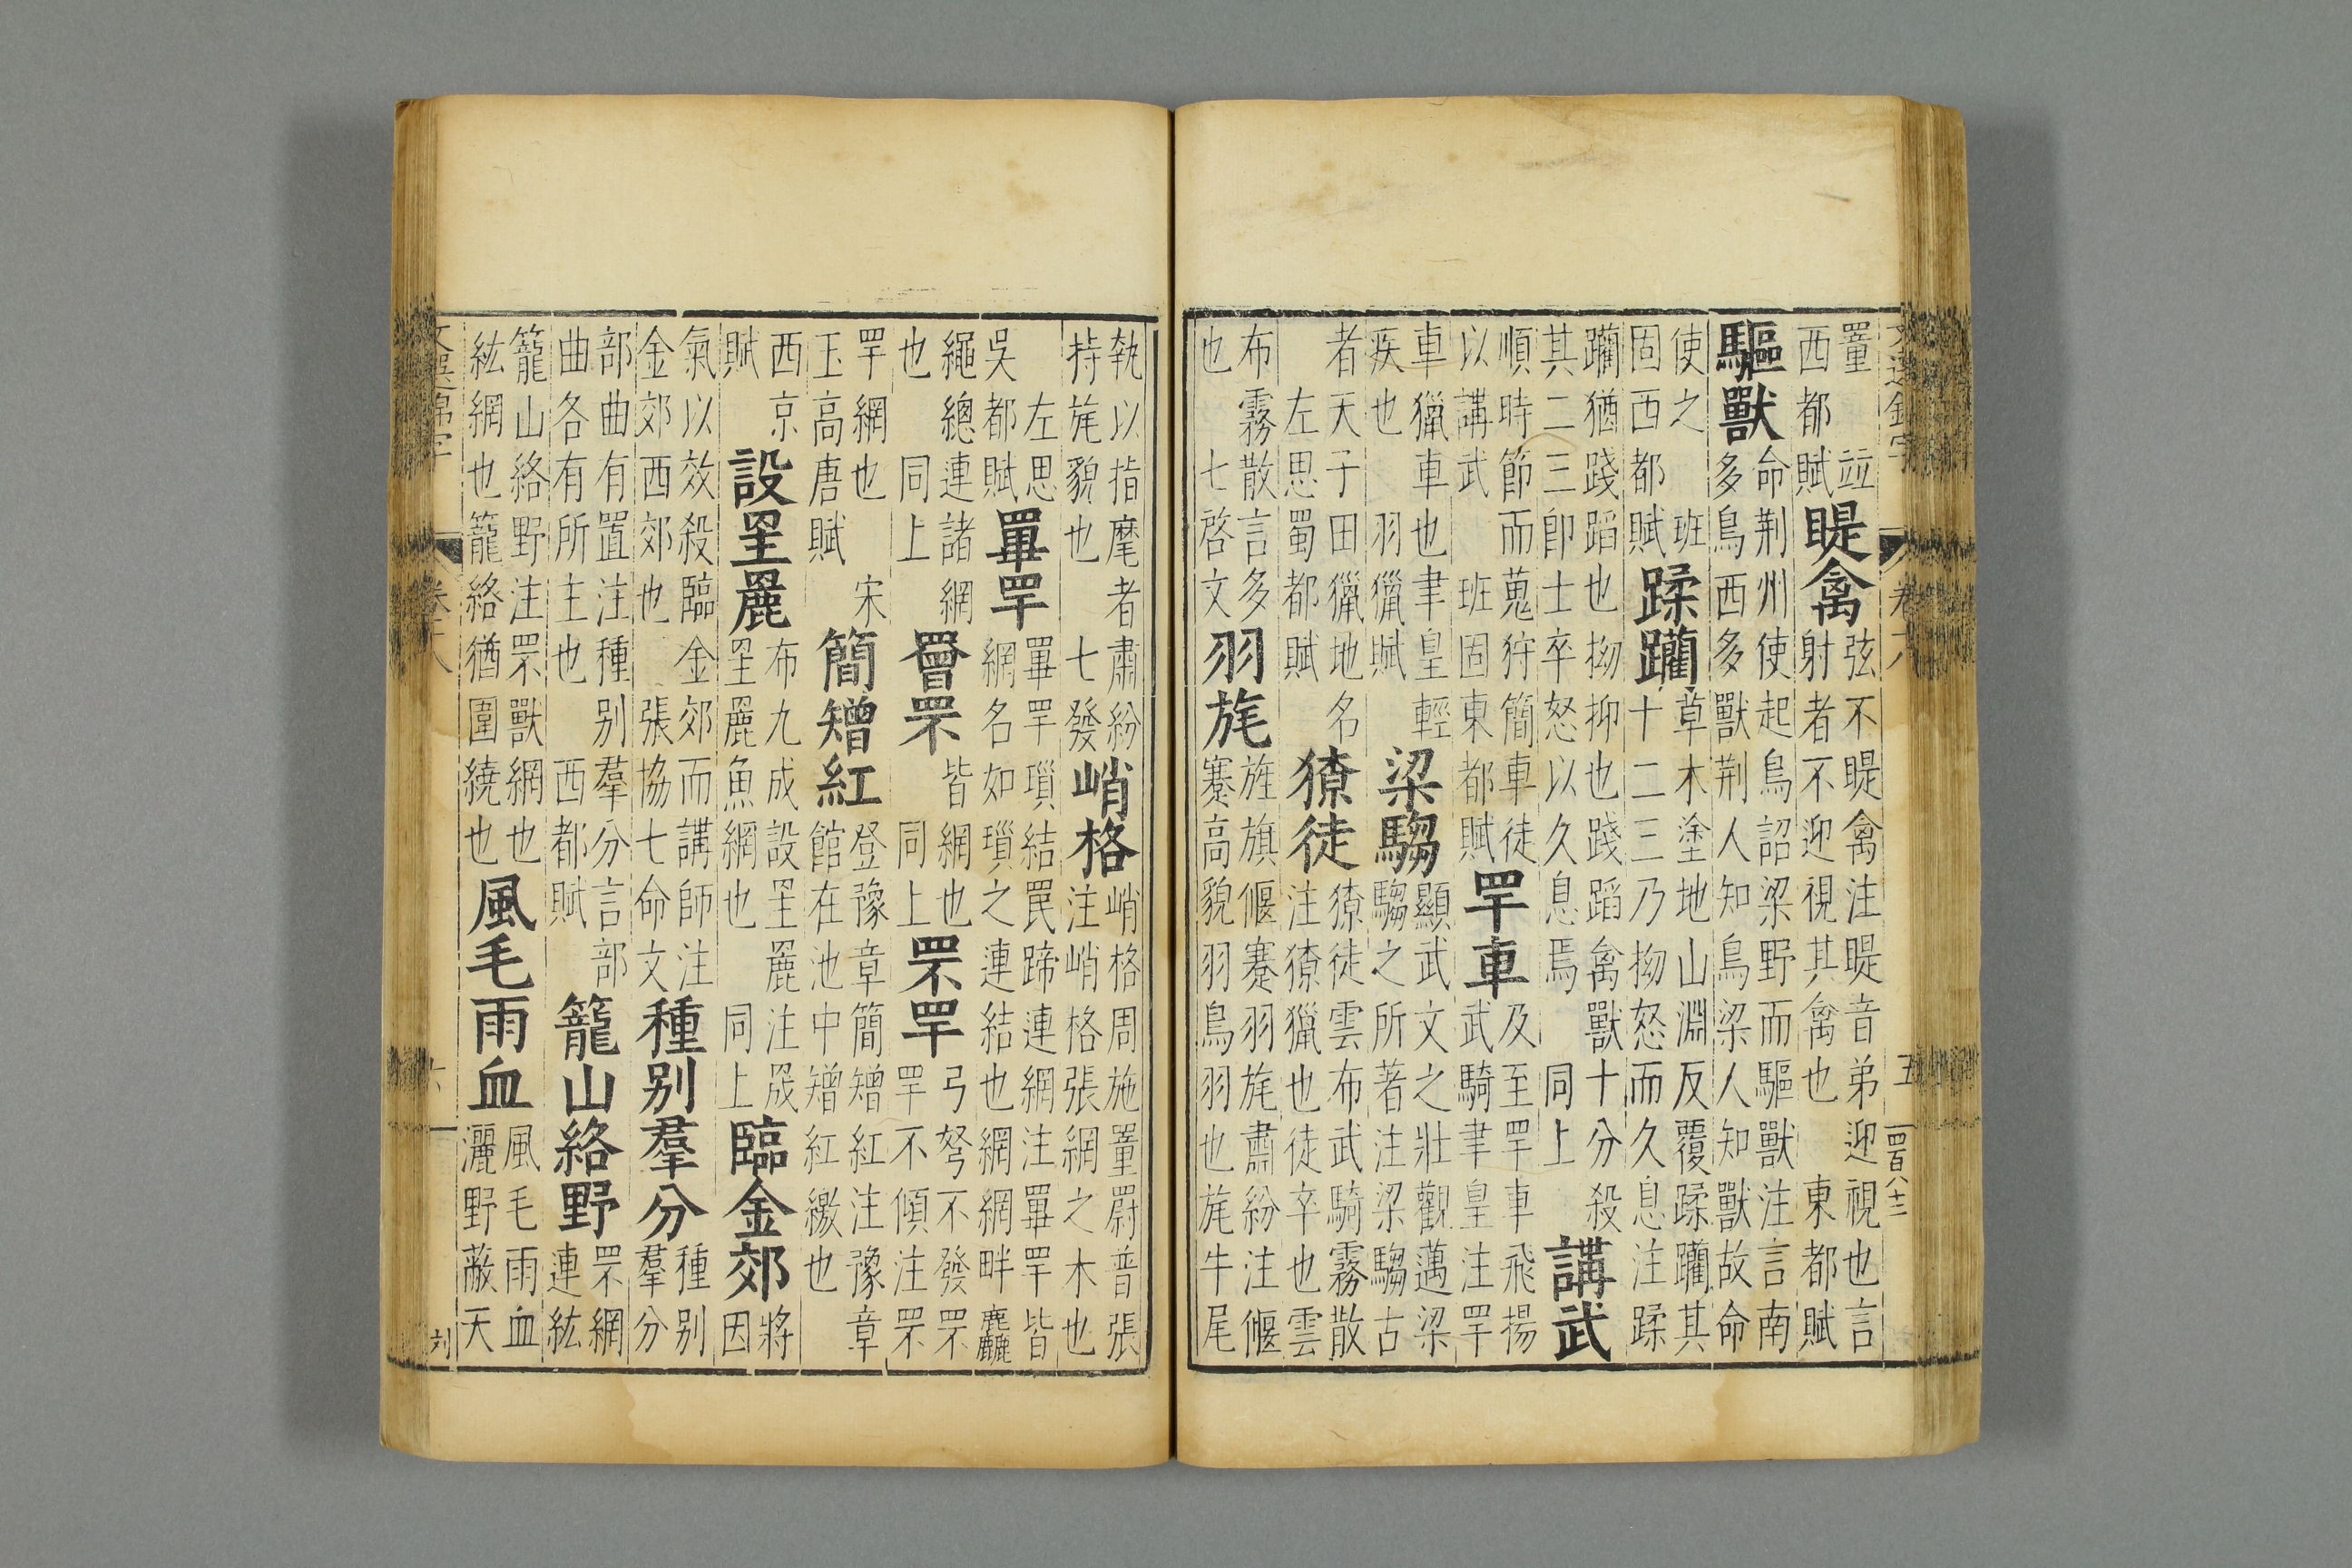 罿　竝睼禽弦不睼禽注睼音弟迎視也言
西都賦睼禽射者不迎視其禽也　東都賦
驅獸命荆州使起鳥詔梁野而驅獸注言南
多鳥西多獸荆人知鳥梁人知獸故命
使之　班蹂躪草木塗地山淵反覆蹂躪其
固西都賦蹂躪十二三乃拗怒而久息注蹂
躪猶踐蹈也拗抑也踐蹈禽獸十分殺
其二三卽士卒怒以久息焉　同上講武
順時節而蒐狩簡車徒罕車及至罕車飛揚
以講武　班固東都賦罕車武騎聿皇注罕
車獵車也聿皇輕梁騶顯武文之壯觀邁梁
疾也　羽獵賦梁騶騶之所著注梁騶古
者天子田獵地名獠徒獠徒雲布武騎霧散
左思蜀都賦獠徒注獠獵也徒卒也雲
布霧散言多羽旄旌旗偃蹇羽旄肅紛注偃
也　七啓文羽旄蹇高貌羽鳥羽也旄牛尾
執以指麾者肅紛峭格峭格周施罿罻普張
持旄貌也　七發峭格注峭格張網之木也
左思罼罕罼罕瑣結罠蹄連網注罼罕皆
吳都賦罼罕網名如瑣之連結也網網畔
繩總連諸網罾罘皆網也罘罕弓弩不發罘
也　同上罾罘同上罘罕罕不傾注罘
罕網也　宋簡矰紅登豫章簡矰紅注豫章
玉高唐賦簡矰紅館在池中矰紅繳也
西京設罜䍡布九成設罜䍡注罜同上臨金郊將
賦設罜䍡罜䍡魚網也　同上臨金郊因
氣以效殺臨金郊而講師注種别羣分種别
金郊西郊也　張協七命文種别羣分羣分
部曲有置注種别羣分言部籠山絡野罘網
曲各有所主也　西都賦籠山絡野連紘
籠山絡野注罘獸網也風毛雨血風毛雨血
紘網也籠絡猶圍繞也風毛雨血灑野蔽天